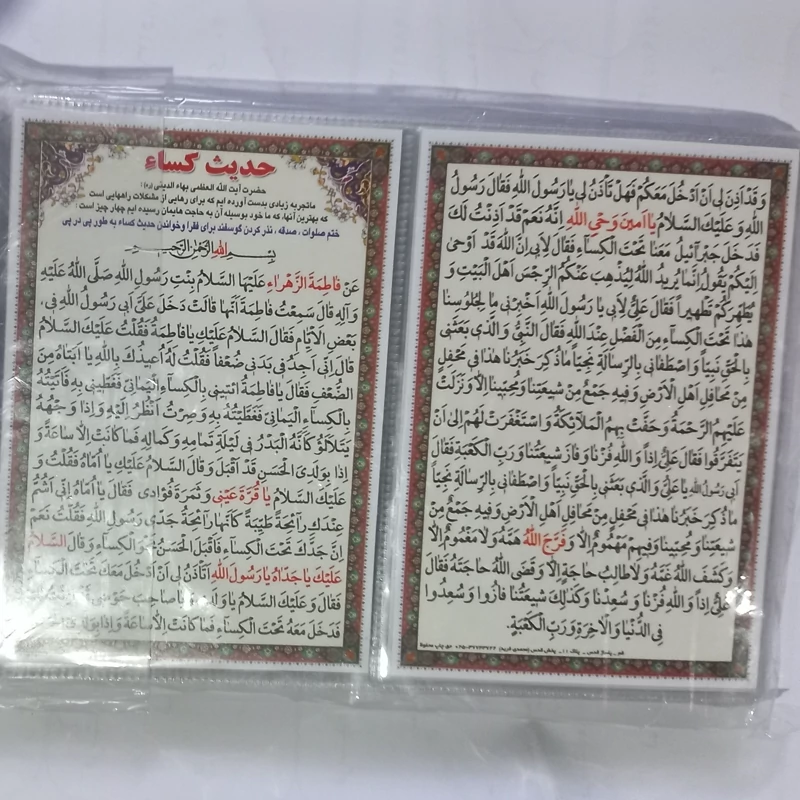 حدیث کساء
حضرت آیت الله العظمی بهاء الدینی (ره) :
ماتجربه زیادی بدست آورده ایم که برای رهایی از مشکلات راههایی است
که بهترین آنها، که ما خود بوسیله آن به حاجت هایمان رسیده ایم چهار چیز است :
ختم صلوات ، صدقه ، نذر کردن گوسفند برای فقرا وخواندن حدیث کساء به طور پی در پی
بِسْمِ اللهِ الرَّحْمنِ الرَّحيمِ
عَنْ فاطِمَةَ الزَّهْراءِ عَلَيْهَا السَّلامُ بِنْتِ رَسُولِ اللهِ صَلَّى اللهُ عَلَيْهِ
وَ الِهِ قالَ سَمِعْتُ فاطِمَةَ اَنَّها قالَتْ دَخَلَ عَلَيَّ اَبي رَسُولُ اللهِ في
بَعْضِ الْاَيّامِ فَقالَ السَّلامُ عَلَيْكِ يا فاطِمَةُ فَقُلْتُ عَلَيْكَ السَّلامُ
قالَ اِنّي اَجِدُ في بَدَني ضُعْفاً فَقُلْتُ لَهُ اُعيذُكَ بِاللهِ يا اَبَتاهُ مِنَ
الضُّعْفِ فَقالَ يا فاطِمَةُ ائْتيني بِالْكِساءِ الْيَماني فَغَطّيني بِهِ فَاَتَيْتُهُ
بِالْكِساءِ الْيَماني فَغَطَّيْتُهُ بِهِ وَ صِرْتُ اَنْظُرُ اِلَيْهِ وَ اِذا وَجْهُهُ
يَتَلَأْلَؤُ كَاَنَّهُ الْبَدْرُ في لَيْلَةِ تَمامِهِ وَ كَمالِهِ فَما كانَتْ اِلاّ ساعَةً وَ
اِذا بِوَلَدِيَ الْحَسَنِ قَدْ اَقْبَلَ وَ قالَ السَّلامُ عَلَيْكِ يا اُمّاهُ فَقُلْتُ وَ
عَلَيْكَ السَّلامُ يا قُرَّةَ عَيْني وَ ثَمَرَةَ فُؤادي فَقالَ يا اُمّاهُ اِنّي اَشَمُّ
عِنْدَكِ رائِحَةً طَيِّبَةً كَاَنَّها رائِحَةُ جَدّي رَسُولِ اللهِ فَقُلْتُ نَعَمْ
اِنَّ جَدَّكَ تَحْتَ الْكِساءِ فَاَقْبَلَ الْحَسَنُ نَحْوَ الْكِساءِ وَ قالَ السَّلامُ
عَلَيْكَ يا جَدّاهُ يا رَسُولَ اللهِ اَتَأْذَنُ لي اَنْ اَدْخُلَ مَعَكَ تَحْتَ الْكِساءِ
فَقالَ وَ عَلَيْكَ السَّلامُ يا وَلَدي وَ يا صاحِبَ حَوْضي
فَدَخَلَ مَعَهُ تَحْتَ الْكِساءِ فَما كانَتْ اِلاّ ساعَةً وَ اِذا بِوَلَدِيَ
وَ قَدْ اَذِنَ لي اَنْ اَدْخُلَ مَعَكُمْ فَهَلْ تَأْذَنُ لي يا رَسُولَ اللهِ فَقالَ رَسُولُ
اللهِ وَ عَلَيْكَ السَّلامُ يا اَمينَ وَحْيِ اللهِ اِنَّهُ نَعَمْ قَدْ اَذِنْتُ لَكَ
فَدَخَلَ جِبْرائيلُ مَعَنا تَحْتَ الْكِساءِ فَقالَ لِاَبي اِنَّ اللهَ قَدْ اَوْحى
اِلَيْكُمْ يَقُولُ اِنَّما يُريدُ اللهُ لِيُذْهِبَ عَنْكُمُ الرِّجْسَ اَهْلَ الْبَيْتِ وَ
يُطَهِّرَكُمْ تَطْهيراً فَقالَ عَلِيٌّ لِاَبي يا رَسُولَ اللهِ اَخْبِرْني ما لِجُلُوسِنا
هذا تَحْتَ الْكِساءِ مِنَ الْفَضْلِ عِنْدَ اللهِ فَقالَ النَّبِيُّ وَ الَّذي بَعَثَني
بِالْحَقِّ نَبِيّاً وَ اصْطَفاني بِالرِّسالَةِ نَجِيّاً ما ذُكِرَ خَبَرُنا هذا في مَحْفِلٍ
مِنْ مَحافِلِ اَهْلِ الْاَرْضِ وَ فيهِ جَمْعٌ مِنْ شيعَتِنا وَ مُحِبّينا اِلاّ وَ نَزَلَتْ
عَلَيْهِمُ الرَّحْمَةُ وَ حَفَّتْ بِهِمُ الْمَلائِكَةُ وَ اسْتَغْفَرَتْ لَهُمْ اِلى اَنْ
يَتَفَرَّقُوا فَقالَ عَلِيٌّ اِذاً وَ اللهِ فُزْنا وَ فازَ شيعَتُنا وَ رَبِّ الْكَعْبَةِ فَقالَ
اَبي رَسُولُ اللهِ يا عَلِيُّ وَ الَّذي بَعَثَني بِالْحَقِّ نَبِيّاً وَ اصْطَفاني بِالرِّسالَةِ نَجِيّاً
ما ذُكِرَ خَبَرُنا هذا في مَحْفِلٍ مِنْ مَحافِلِ اَهْلِ الْاَرْضِ وَ فيهِ جَمْعٌ مِنْ
شيعَتِنا وَ مُحِبّينا وَ فيهِمْ مَهْمُومٌ اِلاّ وَ فَرَّجَ اللهُ هَمَّهُ وَ لا مَغْمُومٌ اِلاّ
وَ كَشَفَ اللهُ غَمَّهُ وَ لا طالِبُ حاجَةٍ اِلاّ وَ قَضَى اللهُ حاجَتَهُ فَقالَ
عَلِيٌّ اِذاً وَ اللهِ فُزْنا وَ سُعِدْنا وَ كَذلِكَ شيعَتُنا فازُوا وَ سُعِدُوا
فِي الدُّنْيا وَ الْاخِرَةِ وَ رَبِّ الْكَعْبَةِ.
قم _ پاساژ قدس _ پلاک ۱۱ _ پخش قدس